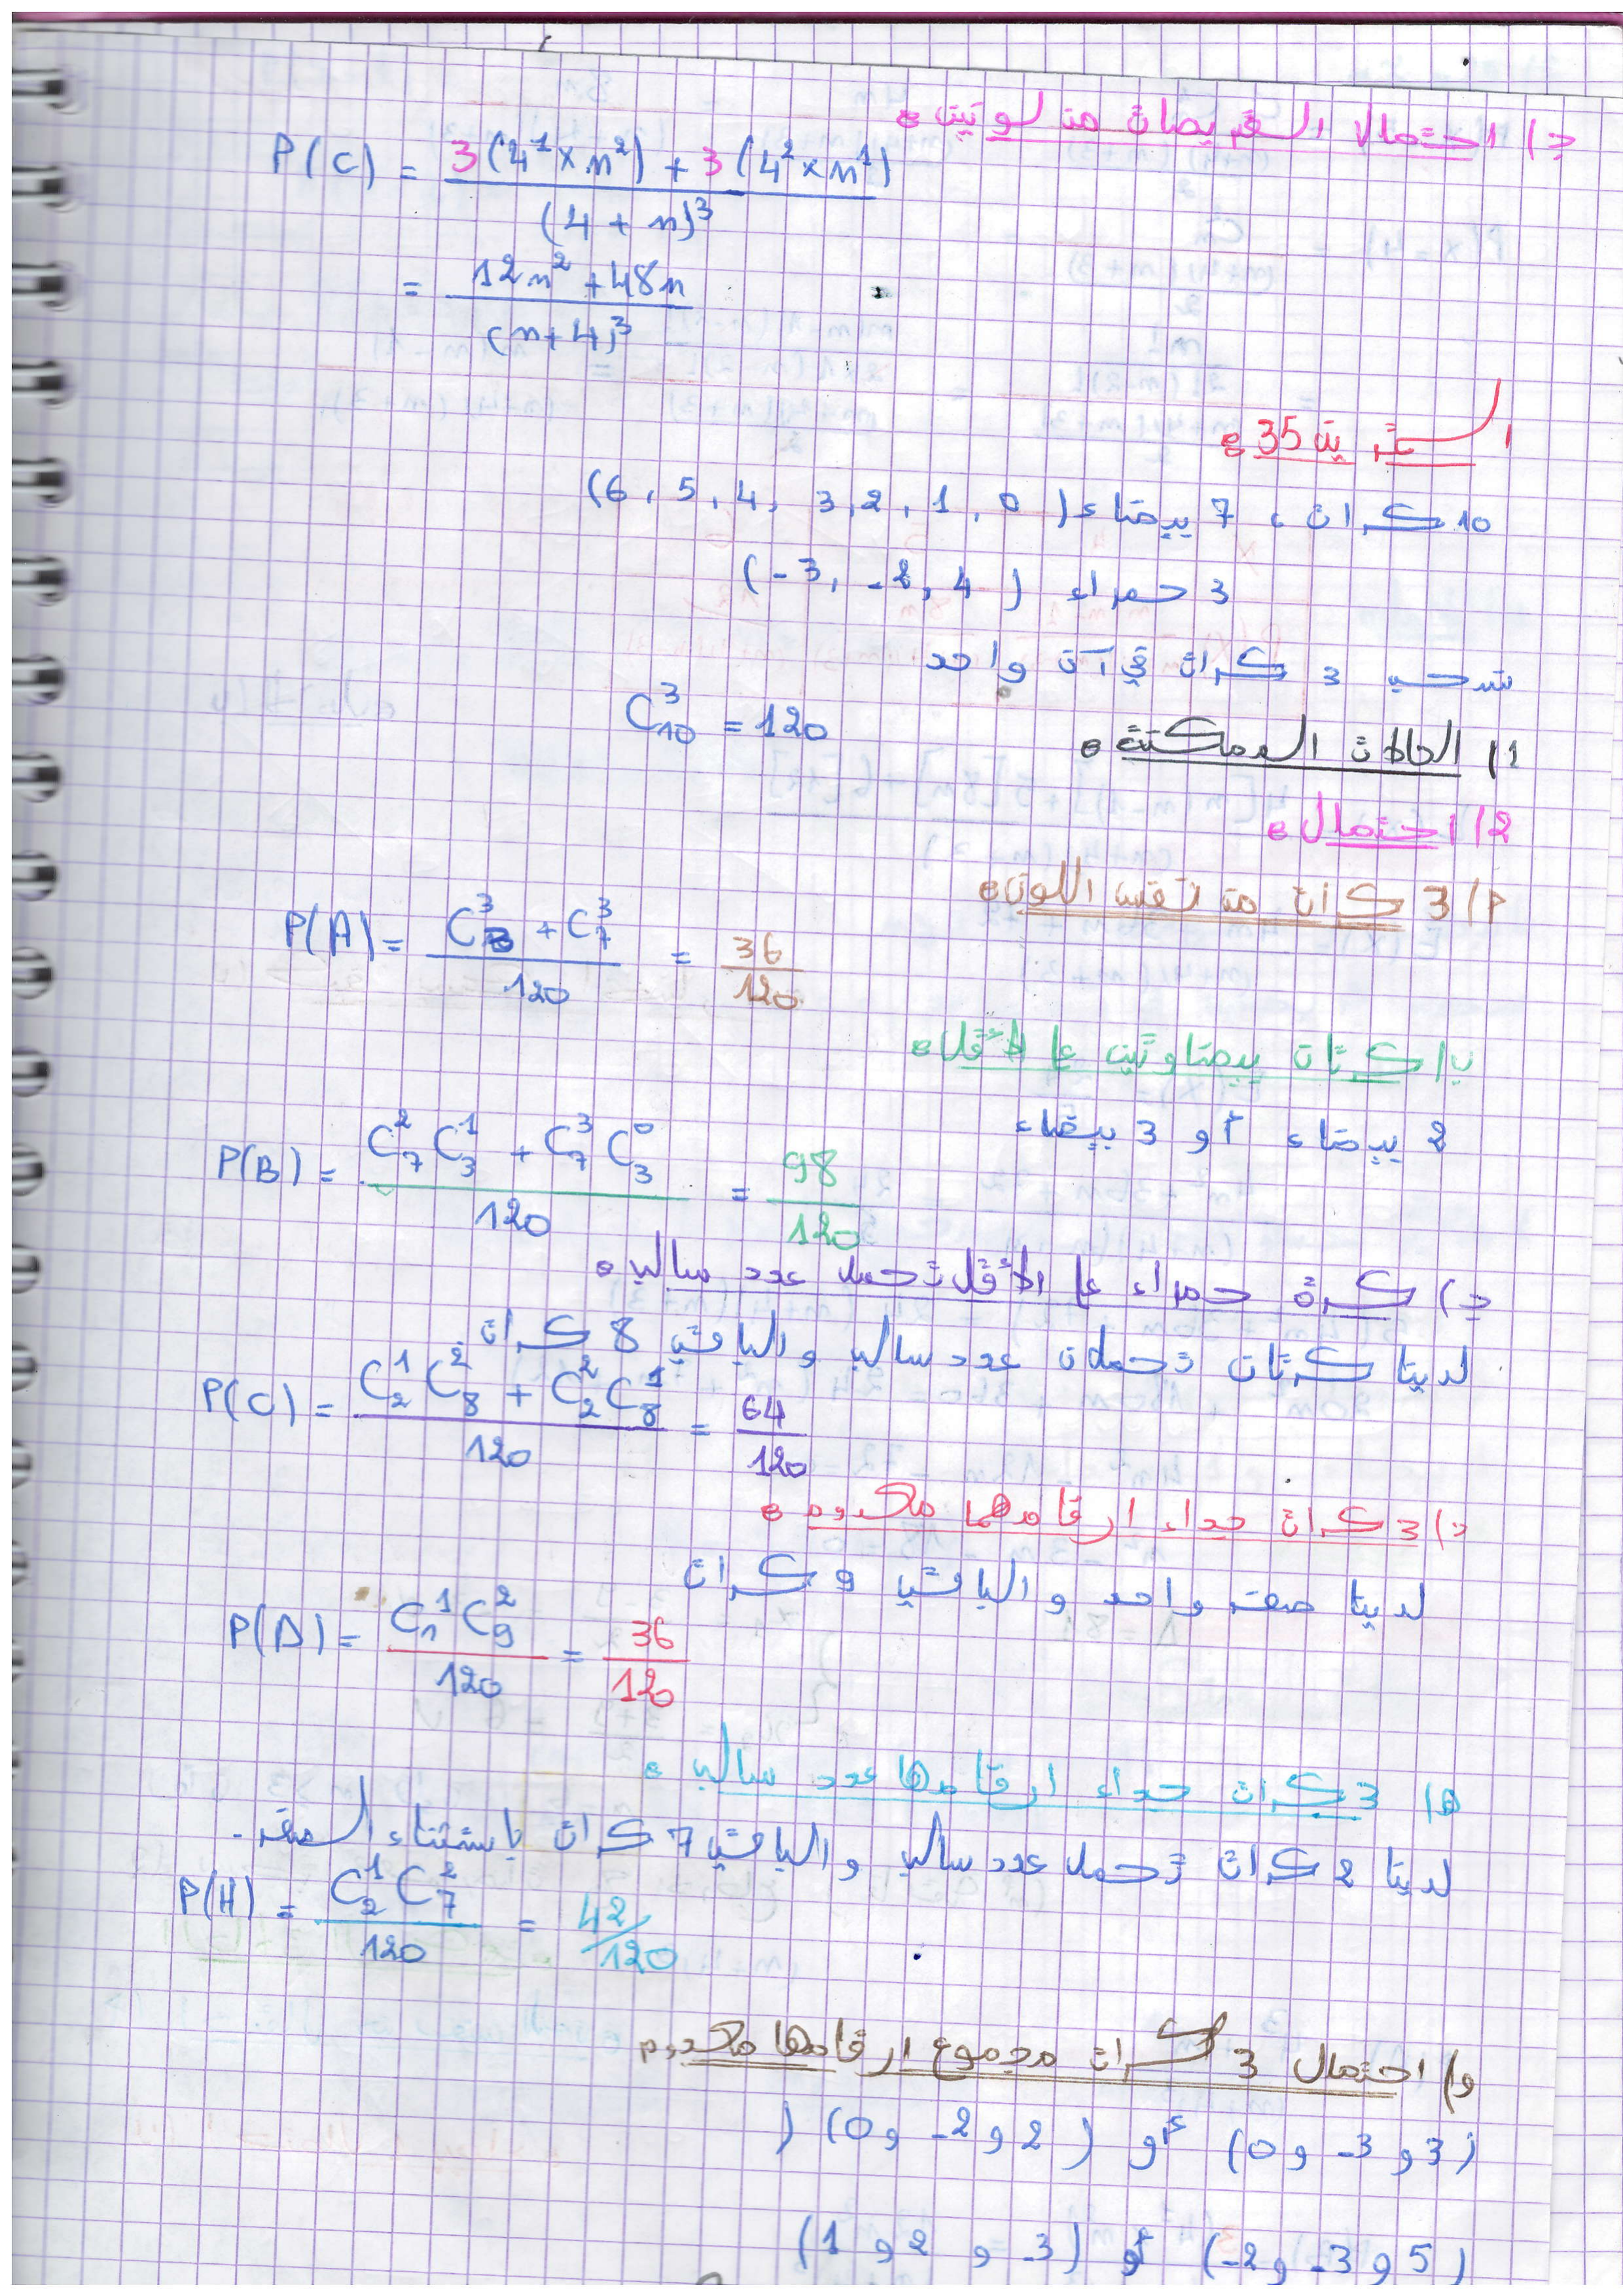 ج) احتمال القريصات من لونين :
P(C) = 3(4¹×n²) + 3(4²×n¹) / (4+n)³
= 12n² + 48n / (n+4)³
التمرين 35 :
10 كرات ، 7 بيضاء (0 ، 1 ، 2 ، 3 ، 4 ، 5 ، 6)
3 حمراء (4 ، -2 ، -3)
نسحب 3 كرات في آن واحد
1) الحالات الممكنة : C₁₀³ = 120
2) احتمال :
أ) 3 كرات من نفس اللون :
P(A) = C₃³ + C₇³ / 120 = 36/120
ب) كرتان بيضاوتين على الأقل :
2 بيضاء أو 3 بيضاء
P(B) = C₇² C₃¹ + C₇³ C₃⁰ / 120 = 98/120
ج) كرة حمراء على الأقل تحمل عدد سالب :
لدينا كرتان تحملان عدد سالب والباقي 8 كرات
P(C) = C₂¹ C₈² + C₂² C₈¹ / 120 = 64/120
د) 3 كرات جداء ارقامهما معدوم :
لدينا صفر واحد والباقي 9 كرات
P(D) = C₁¹ C₉² / 120 = 36/120
ه) 3 كرات جداء ارقامها عدد سالب :
لدينا 2 كرات تحمل عدد سالب والباقي 7 كرات باستثناء الصفر.
P(H) = C₂¹ C₇² / 120 = 42/120
و) احتمال 3 كرات مجموع ارقامها معدوم
(3 و -3 و 0) أو (2 و -2 و 0)
(5 و -3 و -2) أو (-3 و 2 و 1)